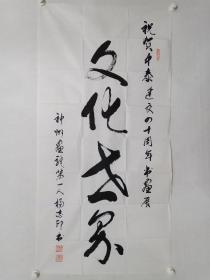 祝贺中泰建交四十周年书画展
文化世界
神州画龙第一人杨志印书